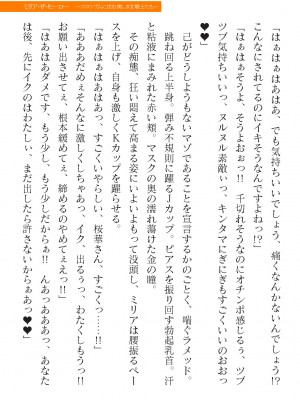 「はぁはぁはあはあ、でも気持ちいいでしょう!? 痛くなんかないんでしょう!?
こんなにされてるのにイキそうなんですよねっ!?」
「はぁはぁそうよ、そうよおぉっ!! 千切れそうなのにオチンポ感じるぅ、ツブ
ツブ気持ちいいっ、ヌルヌル素敵いっ、キンタマにぎにぎもすごくいいのおおっ
♥♥」
己がどうしようもないマゾであることを宣言するかのごとく、喘ぐラメッド。
跳ね回る上半身。弾み不規則に躍るJカップ。ピアスを振り回す勃起乳首。汗
と粘液にまみれた赤い頬。マスクの奥の濡れ蕩けた金の瞳。
その痴態、狂いの悶えて高まる姿にいよいよもって没頭し、ミリアは腰振るペー
スを上げ、自身も激しくKカップを躍らせる。
「はあはぁはあはあっ、すごくいやらしい、桜華さん、すごくっ……!!」
「ああぁだめえぇそんなに激しくしちゃあぁっ、イク、出るぅっ、わたくしもうっ!!
お願い出させてぇ、根本緩めてぇ、締めるのやめてぇえっ!!」
「はあはあダメです、もう少し、もう少しだからぁ!! んああっああっ、あなた
は後、先にイクのはわたしぃ、まだ出したら許さないからぁああっ♥♥」